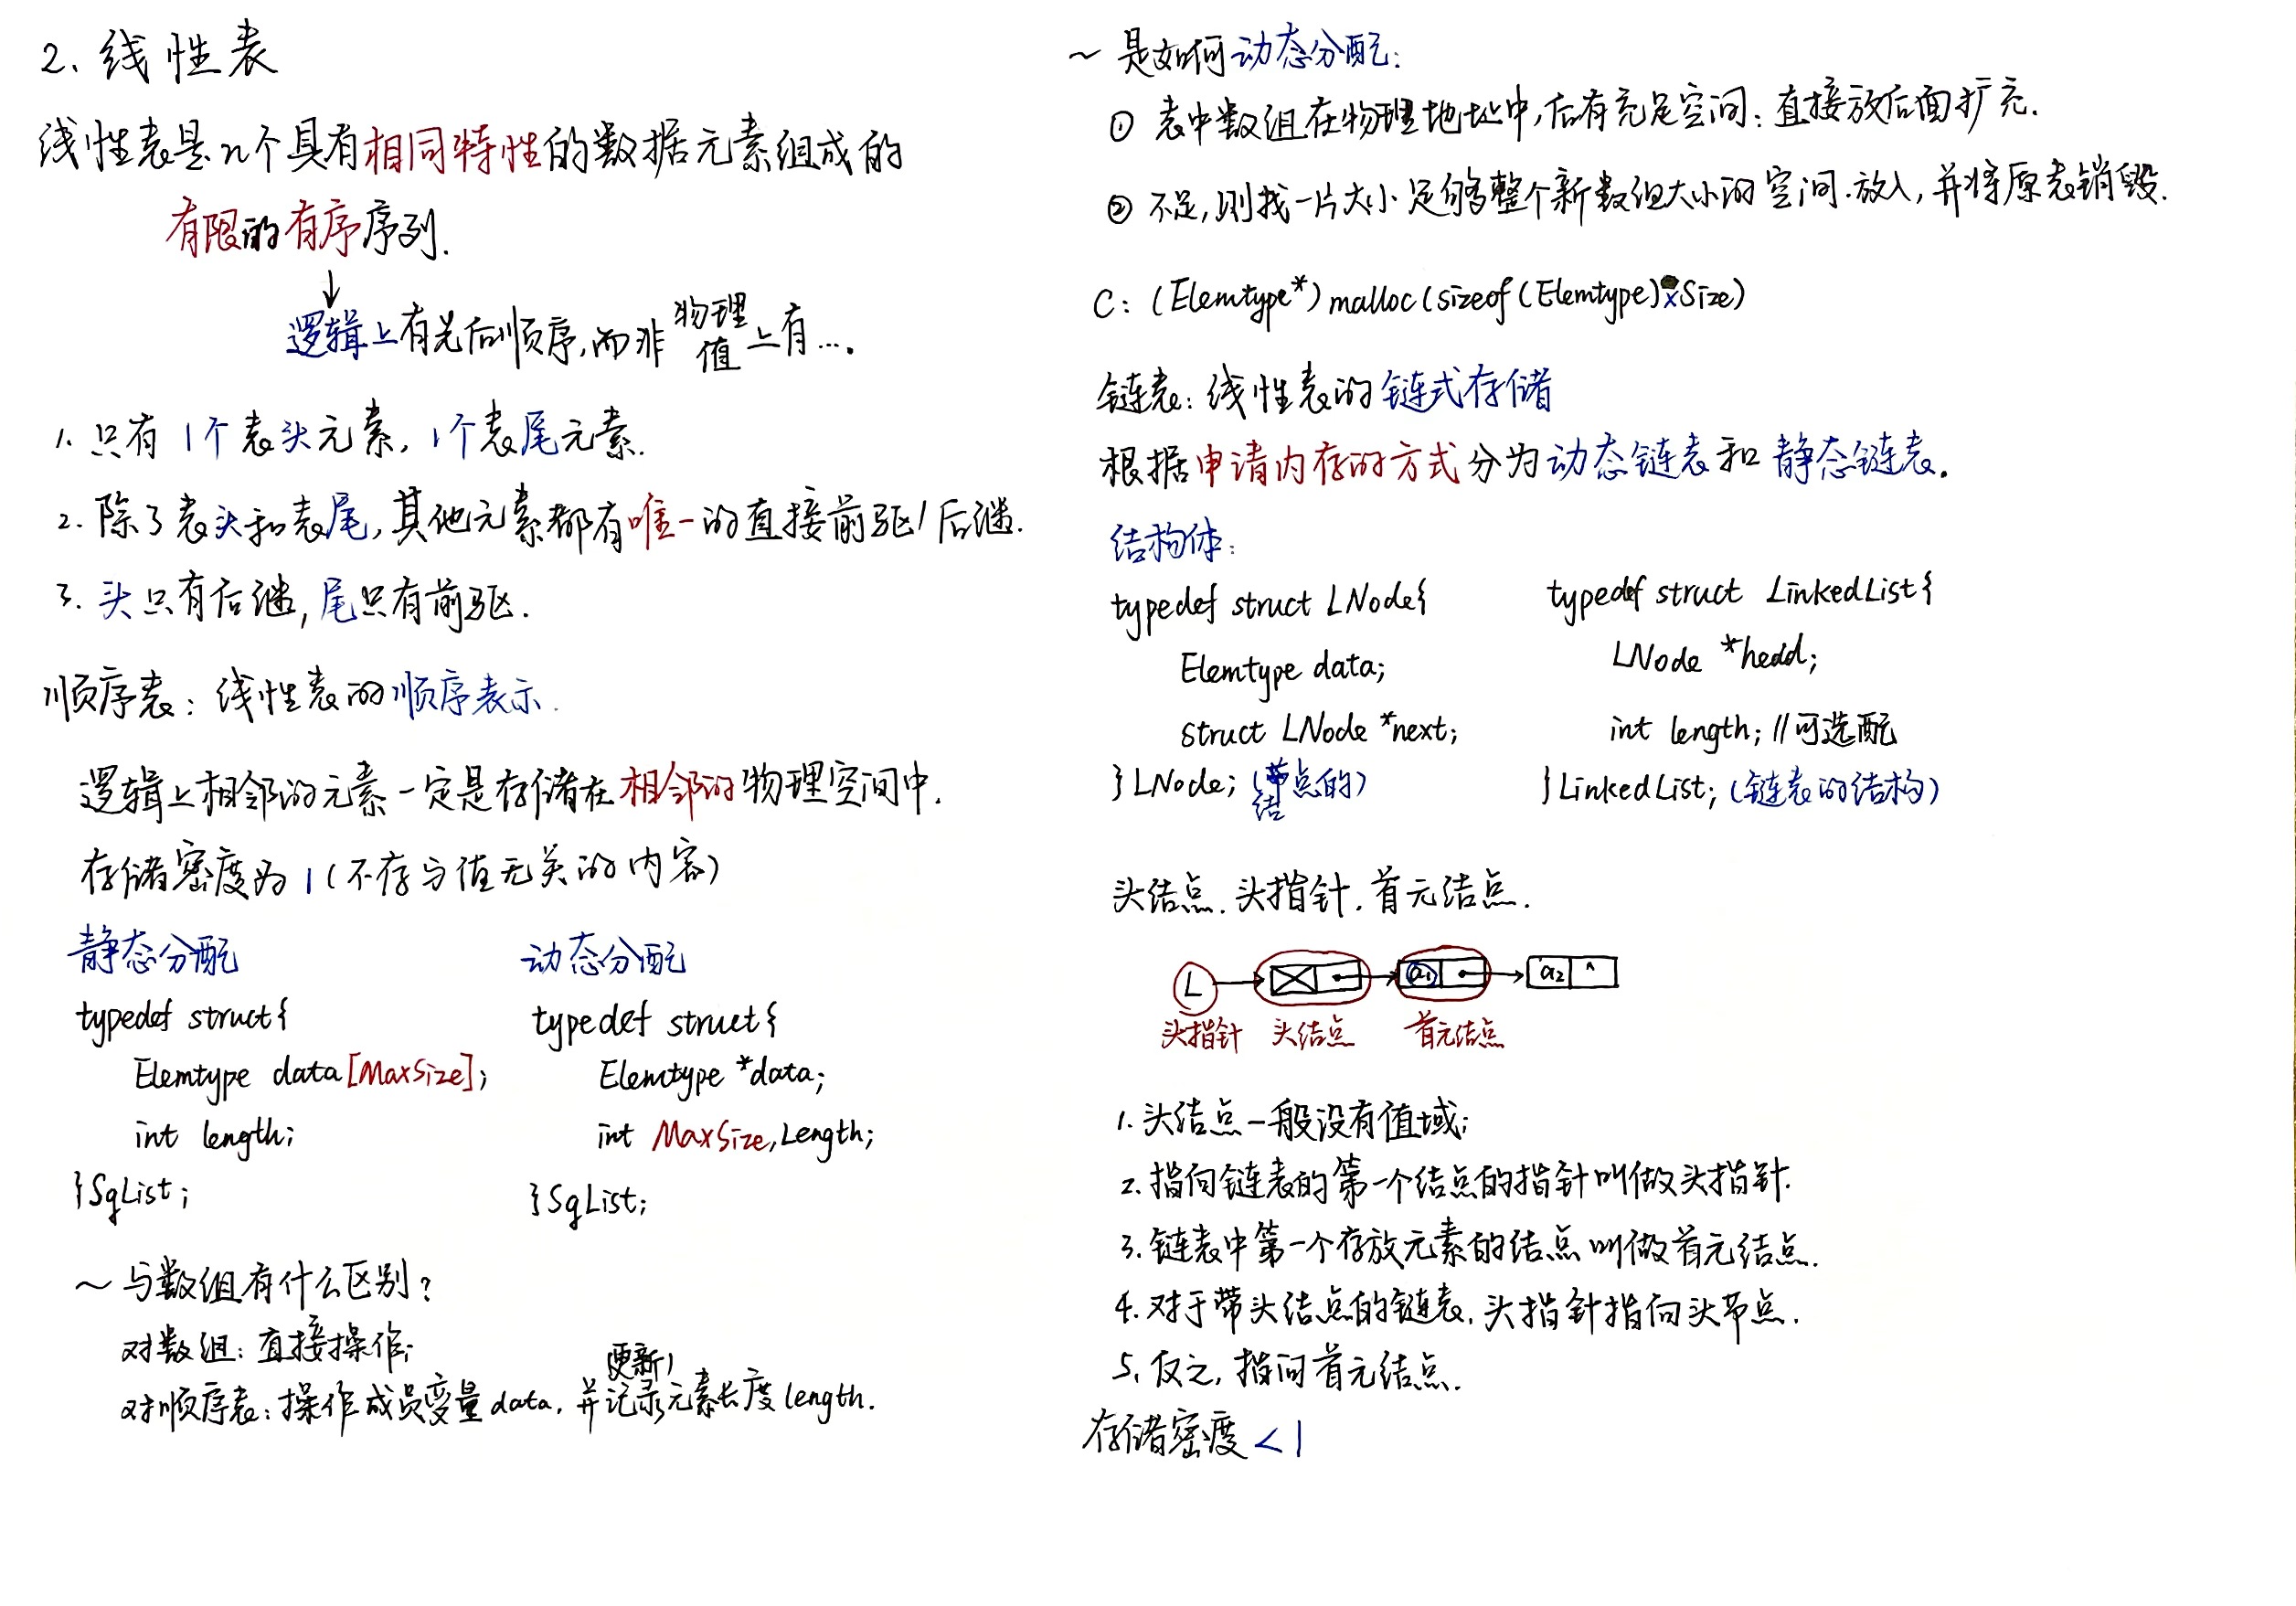 2. 线性表
线性表是n个具有相同特性的数据元素组成的
有限的有序序列.
↓
逻辑上有先后顺序,而非物理值上有….
1. 只有1个表头元素, 1个表尾元素.
2. 除了表头和表尾,其他元素都有唯一的直接前驱/后继.
3. 头只有后继,尾只有前驱.
顺序表: 线性表的顺序表示.
逻辑上相邻的元素一定是存储在相邻的物理空间中.
存储密度为1(不存与值无关的内容)
静态分配
typedef struct{
Elemtype data[MaxSize];
int length;
}SqList;
动态分配
typedef struct{
Elemtype *data;
int MaxSize,Length;
}SqList;
~ 与数组有什么区别?
对数组: 直接操作;
对顺序表: 操作成员变量data, 并记录(更新)元素长度length.
~ 是如何动态分配:
① 表中数组在物理地址中,后有充足空间: 直接放后面扩充.
② 不足,则找一片大小足够整个新数组大小的空间.放入,并将原表销毁.
C: (Elemtype*)malloc(sizeof(Elemtype)×Size)
链表: 线性表的链式存储
根据申请内存的方式分为动态链表和静态链表.
结构体:
typedef struct LNode{
Elemtype data;
struct LNode *next;
}LNode; (结点的)
typedef struct LinkedList{
LNode *hedd;
int length; //可选配
}LinkedList; (链表的结构)
头结点.头指针.首元结点.
L a₁ a₂ ^
头指针 头结点 首元结点
1. 头结点一般没有值域;
2. 指向链表的第一个结点的指针叫做头指针.
3. 链表中第一个存放元素的结点叫做首元结点.
4. 对于带头结点的链表,头指针指向头节点.
5. 反之,指向首元结点.
存储密度<1